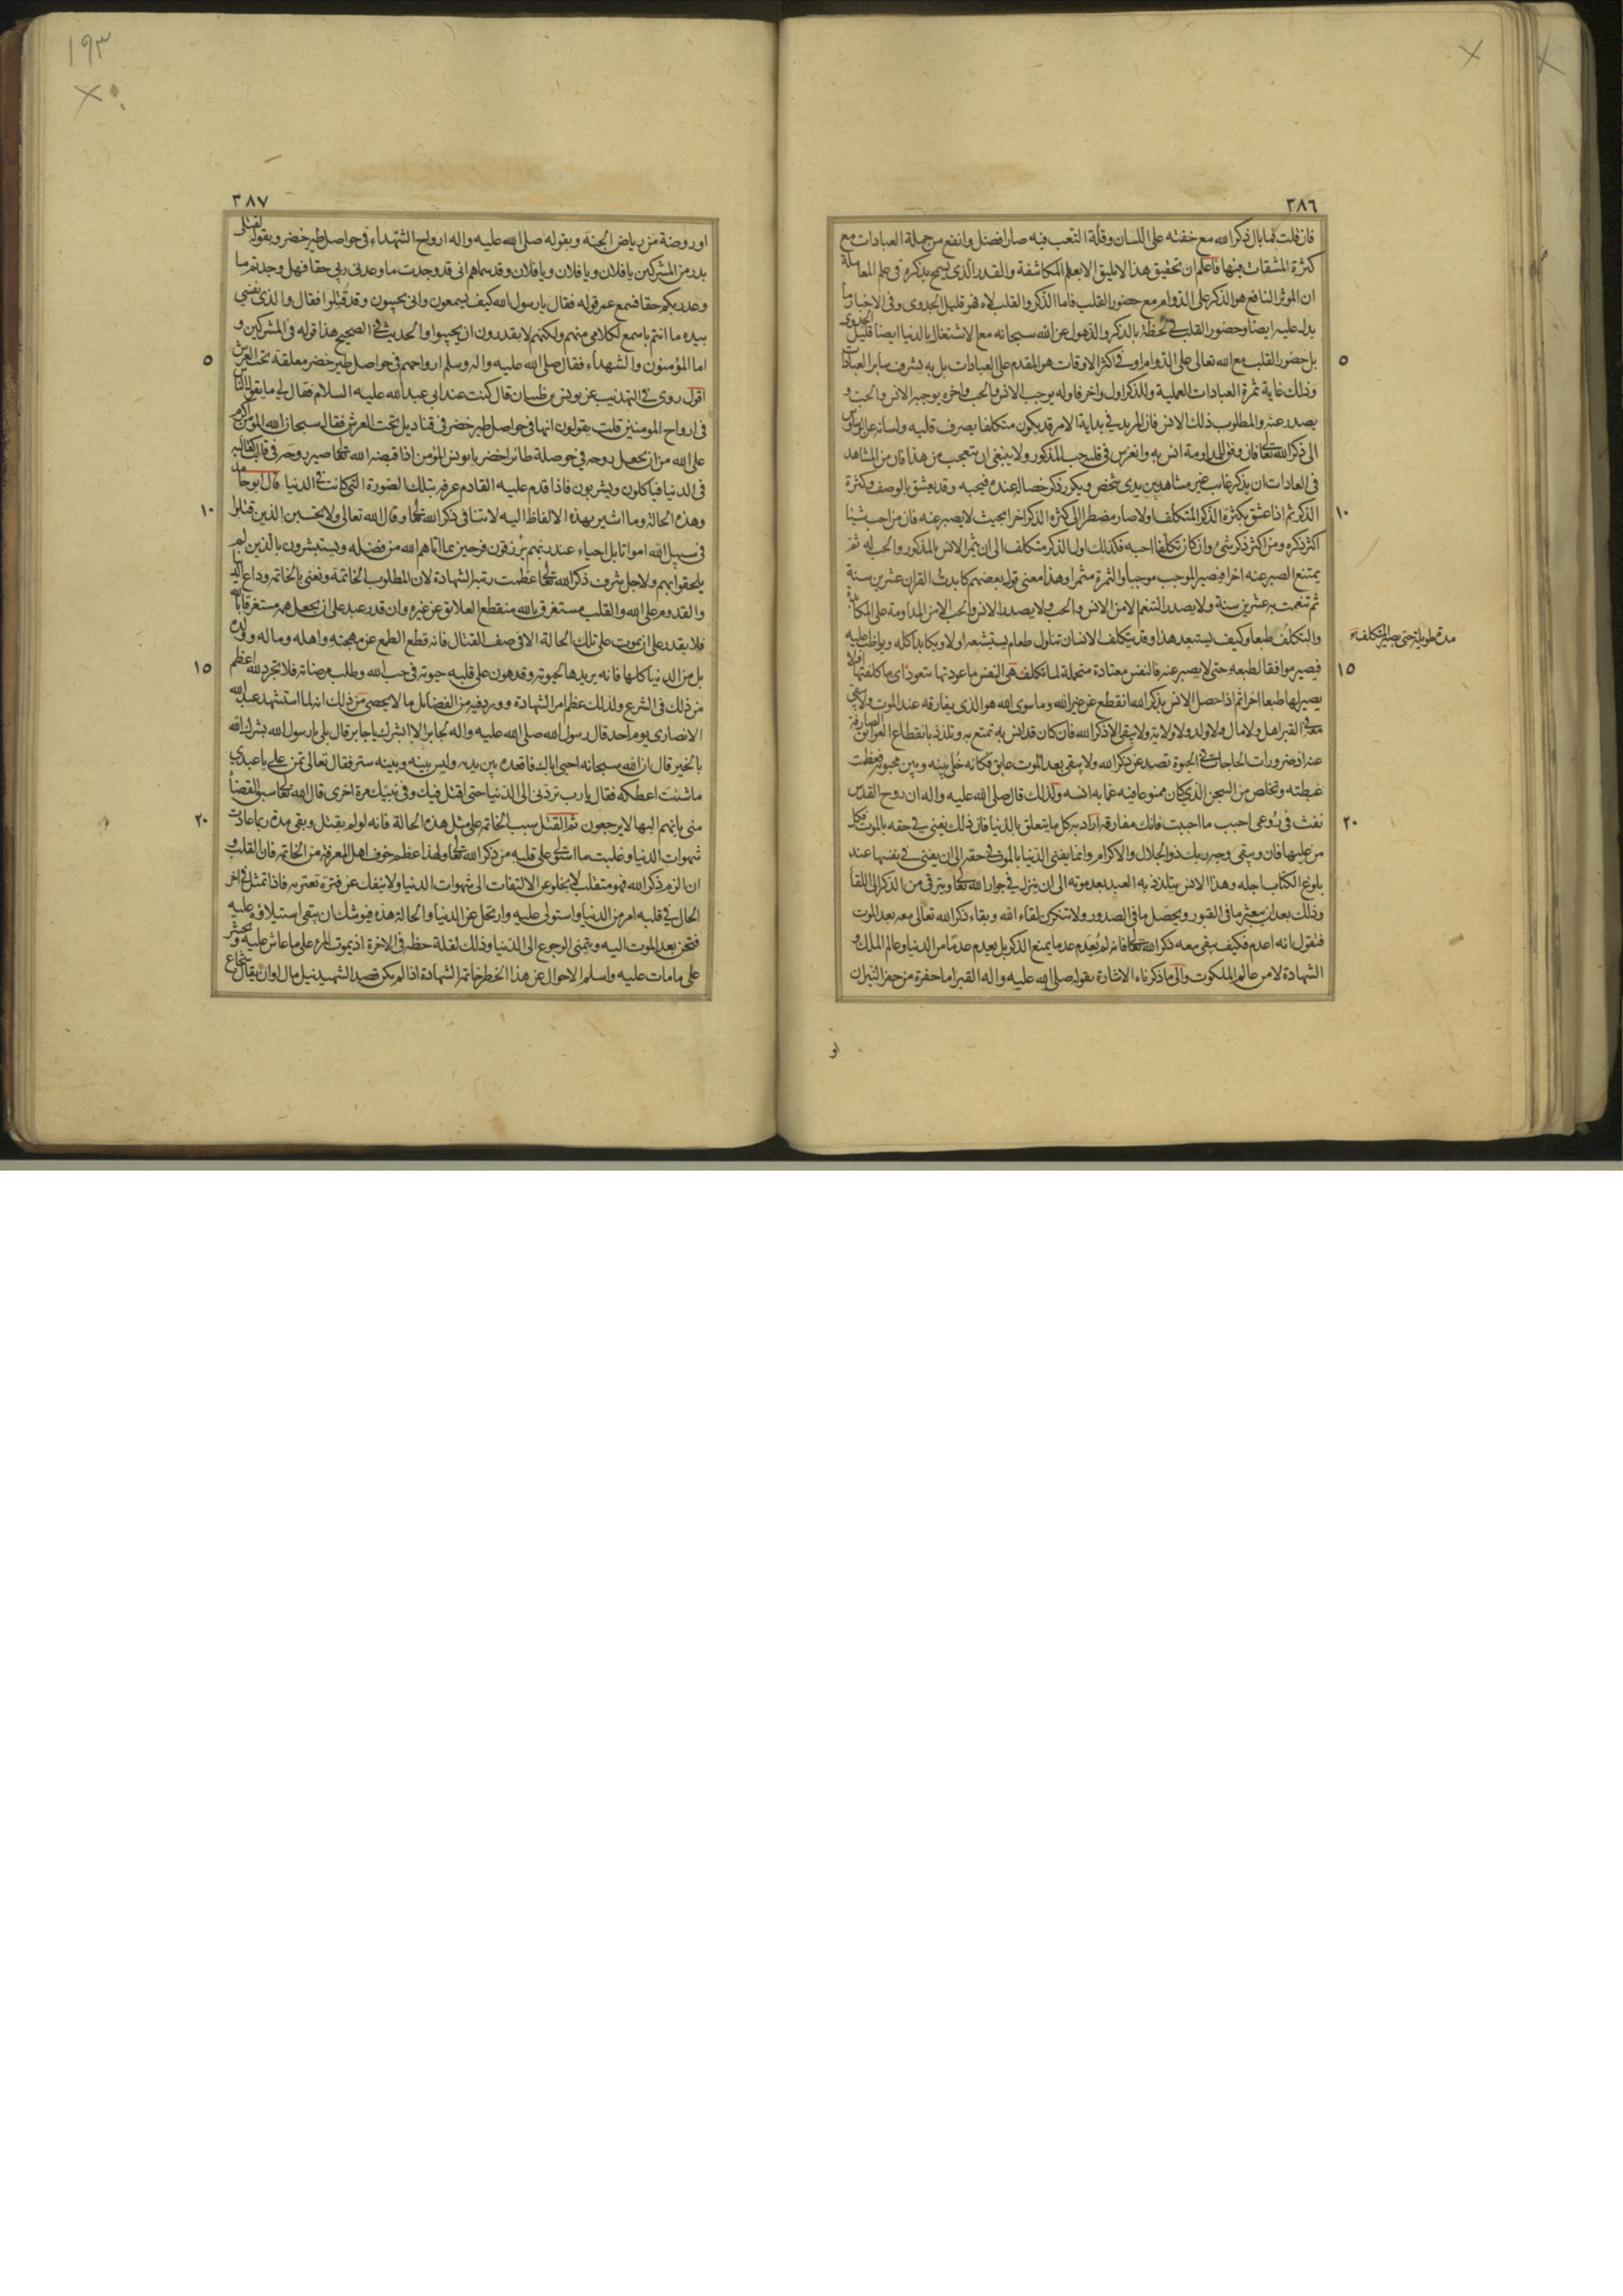 ٣٨٦
فان قلت فما بال ذكر الله مع خفته على اللسان وقلة التعب فيه صار افضل وانفع من جملة العبادات مع
كثرة المشقات فيها فاعلم ان تحقيق هذا لا يليق الا بعلم المكاشفة والقدر الذى يسمح بذكره فى علم المعاملة
ان الموثر النافع هو الذكر على الدوام مع حضور القلب فاما الذكر والقلب لاه فهو قليل الجدوى وفى الاخبار ما
يدل عليه ايضا وحضور القلب فى لحظة بالذكر والذهول عن الله سبحانه مع الاشتغال بالدنيا ايضا قليل الجدوى
بل حضور القلب مع الله تعالى على الدوام او فى اكثر الاوقات هو المقدم على العبادات بل به يشرف ساير العبادات
٥
وذلك غاية ثمرة العبادات العملية وللذكر اول واخر فاوله يوجب الانس والحب واخره يوجبه الانس والحب و
يصدر عنه والمطلوب ذلك الانس فان المريد فى بداية الامر قد يكون متكلفا يصرف قلبه ولسانه عن الوسواس
الى ذكر الله تعالى فان وفق للمداومة انس به وانغرس فى قلبه حب المذكور ولا ينبغى ان يتعجب من هذا فان من المشاهد
فى العادات ان يذكر غايب غير مشاهد بين يدى شخص ويكرر ذكر خصاله عنده فيحبه وقد يعشق بالوصف وكثرة
الذكر ثم اذا عشق بكثرة الذكر المتكلف اولا صار مضطرا الى كثرة الذكر اخرا بحيث لا يصبر عنه فان من احب شيئا
١٠
اكثر ذكره ومن اكثر ذكر شىء وان كان تكلفا احبه فكذلك اول الذكر متكلف الى ان يثمر الانس بالمذكور والحب له ثم
يمتنع الصبر عنه اخرا فيصير الموجب موجبا والثمرة مثمرا وهذا معنى قول بعضهم كابدت القران عشرين سنة
ثم تنعمت به عشرين سنة ولا يصدر التنعم الا من الانس والحب ولا يصدر الانس والحب الا من المداومة على المكابدة
والتكلف طبعا وكيف يستبعد هذا وقد يتكلف الانسان تناول طعام يستبشعه اولا ويكابد اكله ويواظب عليه
مدة طويلة حتى يصير المتكلف
فيصير موافقا لطبعه حتى لا يصبر عنه فالنفس معتادة متحملة لما تكلف هى النفس ما عودتها تتعود اى ما كلفتها اولا
١٥
يصير لها طبعا اخرا ثم اذا حصل الانس بذكر الله انقطع عن غير الله وما سوى الله هو الذى يفارقه عند الموت ولا يبقى
معه فى القبر اهل ولا مال ولا ولد ولا ولاية ولا يبقى الا ذكر الله فان كان قد انس به تمتع به وتلذذ بانقطاع العوائق الصارفة
عنه اذ ضرورات الحاجات فى الحيوة تصد عن ذكر الله ولا يبقى بعد الموت عايق فكانه خلى بينه وبين محبوبه فعظمت
غبطته وتخلص من السجن الذى كان ممنوعا فيه عما به انسه ولذلك قال صلى الله عليه واله ان روح القدس
نفث فى روعى احبب ما احببت فانك مفارقه اراد به كل ما يتعلق بالدنيا فان ذلك يفنى فى حقه بالموت فكل
٢٠
من عليها فان ويبقى وجه ربك ذو الجلال والاكرام وانما يفنى الدنيا بالموت فى حقه الى ان يفنى فى نفسها عند
بلوغ الكتاب اجله وهذا الانس يتلذذ به العبد بعد موته الى ان ينزل فى جوار الله تعالى ويترقى من الذكر الى اللقا
وذلك بعد ان يبعثر ما فى القبور ويحصل ما فى الصدور ولا تنكرن لقاء الله وبقاء ذكر الله تعالى معه بعد الموت
فنقول انه اعدم فكيف يبقى معه ذكر الله تعالى فانه لم يعدم عدما يمنع الذكر بل يعدم عدما من الدنيا وعالم الملك و
الشهادة لا من عالم الملكوت والى ما ذكرناه الاشارة بقوله صلى الله عليه واله القبر اما حفرة من حفر النيران
او
١٩٣
٣٨٧
او روضة من رياض الجنة وبقوله صلى الله عليه واله ارواح الشهداء فى حواصل طير خضر وبقوله لقتلى
بدر من المشركين يا فلان ويا فلان ويا فلان وقد سماهم انى قد وجدت ما وعدنى ربى حقا فهل وجدتم ما
وعد ربكم حقا فسمع عمر قوله فقال يا رسول الله كيف يسمعون وانى يجيبون وقد قتلوا فقال والذى نفسى
بيده ما انتم باسمع لكلامى منهم ولكنهم لا يقدرون ان يجيبوا والحديث فى الصحيح هذا قوله فى المشركين و
اما المؤمنون والشهداء فقال صلى الله عليه واله وسلم ارواحهم فى حواصل طير خضر معلقة تحت العرش
٥
اقول روى فى التهذيب عن يونس بن ظبيان قال كنت عند ابى عبد الله عليه السلام فقال لى ما يقول الناس
فى ارواح المومنين قلت يقولون انها فى حواصل طير خضر فى قناديل تحت العرش فقال سبحان الله المؤمن اكرم
على الله من ان يجعل روحه فى حوصلة طائر اخضر يا يونس المؤمن اذا قبضه الله تعالى صير روحه فى قالب كقالبه
فى الدنيا فياكلون ويشربون فاذا قدم عليه القادم عرفه بتلك الصورة التى كانت فى الدنيا قال ابو حامد
وهذه الحالة وما اشير بهذه الالفاظ اليه لا تنافى ذكر الله تعالى وقال الله تعالى ولا تحسبن الذين قتلوا
١٠
فى سبيل الله امواتا بل احياء عند ربهم يرزقون فرحين بما اتاهم الله من فضله ويستبشرون بالذين لم
يلحقوا بهم ولاجل شرف ذكر الله تعالى عظمت رتبة الشهادة لان المطلوب الخاتمة ونعنى بالخاتمة وداع الدنيا
والقدوم على الله والقلب مستغرق بالله منقطع العلائق عن غيره وان قدر عبد على ان يجعل همه مستغرقا بالله
فلا يقدر على ان يموت على تلك الحالة الا فى صف القتال فانه قطع الطمع عن مهجته واهله وماله وولده
بل من الدنيا كلها فانه يريدها لحيوته وقد هون على قلبه حيوته فى حب الله وطلب مرضاته فلا تجرد لله اعظم
١٥
من ذلك فى الشرع ولذلك عظم امر الشهادة وورد فيه من الفضايل ما لا يحصى من ذلك انه لما استشهد عبد الله
الانصارى يوم احد قال رسول الله صلى الله عليه واله لجابر الا ابشرك يا جابر قال بلى يا رسول الله بشرك الله
بالخير قال ان الله سبحانه احيى اباك فاقعده بين يديه وليس بينه وبينه ستر فقال تعالى تمن على يا عبدى
ما شئت اعطكه فقال يا رب تردنى الى الدنيا حتى اقتل فيك وفى نبيك مرة اخرى قال الله تعالى سبق القضاء
منى بانهم اليها لا يرجعون ثم القتل سبب الخاتمة على مثل هذه الحالة فانه لو لم يقتل وبقى مدة ربما عادت
٢٠
شهوات الدنيا وغلبت ما استولى على قلبه من ذكر الله تعالى ولهذا عظم خوف اهل المعرفة من الخاتمة فان القلب و
ان الزم ذكر الله فهو متقلب لا يخلو عن الالتفات الى شهوات الدنيا ولا ينفك عن فترة تعتريه فاذا تمثل فى اخر
الحال فى قلبه امر من الدنيا واستولى عليه وارتحل عن الدنيا والحالة هذه فيوشك ان يبقى استيلاؤه عليه
فتحن بعد الموت اليه ويتمنى الرجوع الى الدنيا وذلك لقلة حظه فى الاخرة اذ يموت المرء على ما عاش عليه ويحشر
على ما مات عليه واسلم الاحوال عن هذا الخطر خاتمة الشهادة اذا لم يكن قصد الشهيد نيل مال او ان يقال شجاع